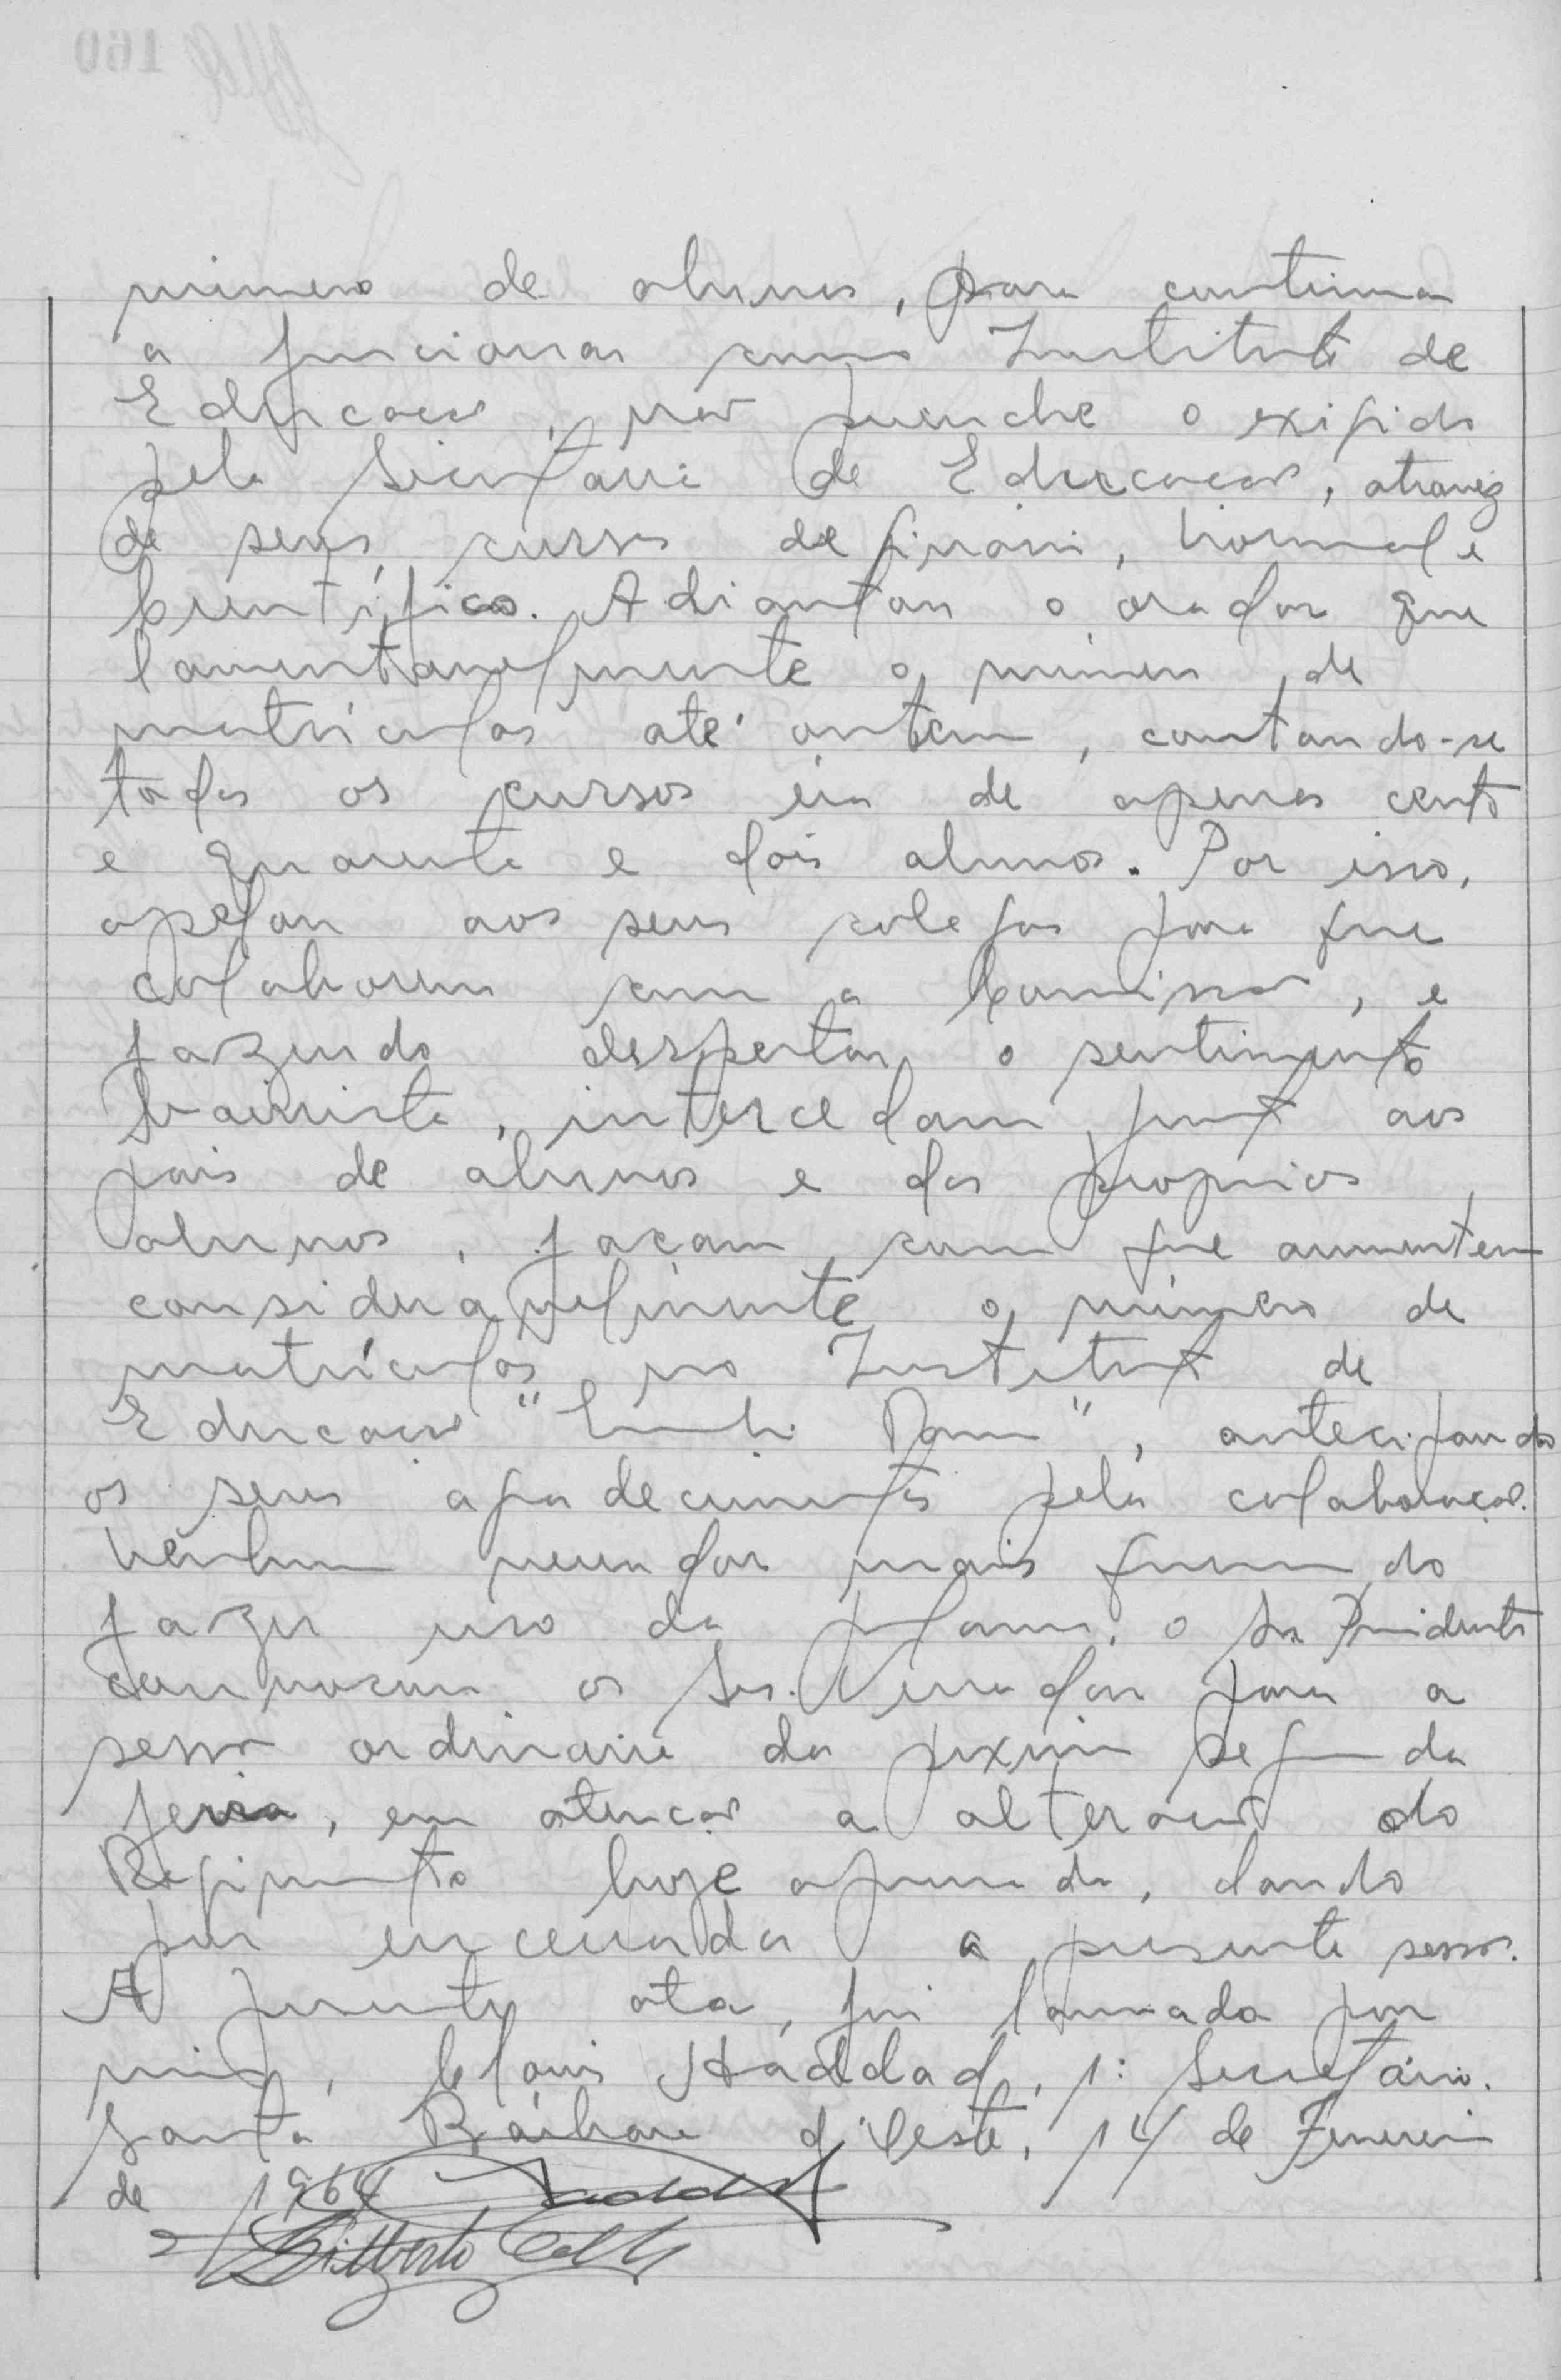 número de alunos, para continuar
a funcionar como Instituto de
Educação, não preenche o exigido
pela Secretaria de Educação, atravez
de seus cursos de ginásio, Normal e
Científico. Adiantou o orador que
lamentavelmente o número de
matrículas até ontem, contando-se
todos os cursos era de apenas cento
e quarenta e dois alunos. Por isso,
apelou aos seus colegas para que
colaborem com a Comissão, e
fazendo despertar o sentimento
bairrista, intercedam junto aos
pais de alunos e dos proprios
alunos, façam com que aumentem
consideravelmente o número de
matrículas no Instituto de
Educação " ", antecipando
os seus agradecimentos pela colaboração.
Nenhum vereador mais querendo
fazer uso da palavra, o Sr. Presidente
convocou os Srs. Vereadores para a
sessão ordinaria da proxima segunda
feira, em atenção a alteração do
Regimento hoje aprovada, dando
por encerrada a presente sessão.
A presente ata, foi lavrada por
mim, Clovis Haddad, 1º Secretário.
Santa Bárbara d'Oeste, 14 de Fevereiro
de 1964 Haddad
Gilberto
160